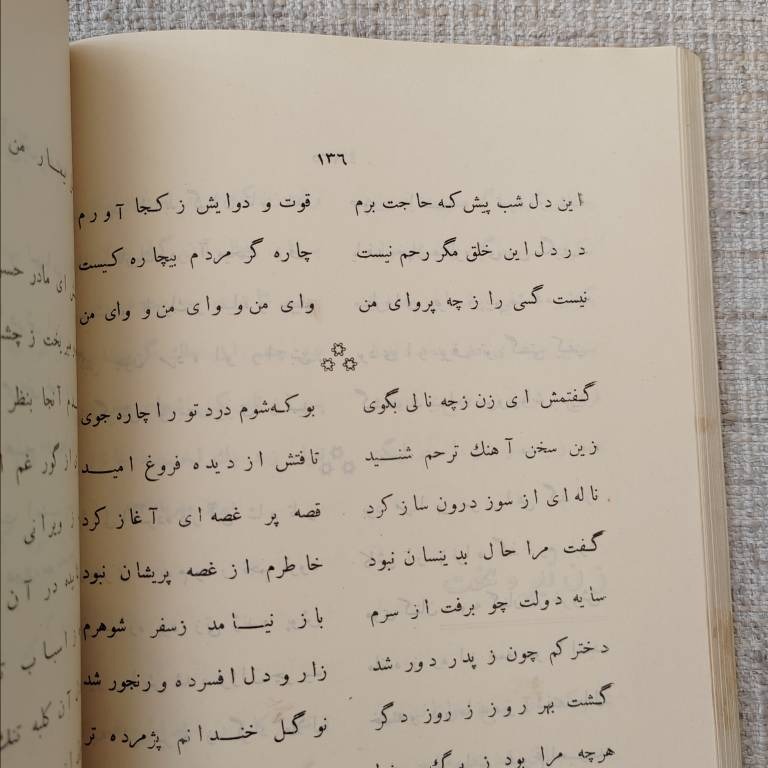 ۱۳۶
این دل شب پیش که حاجت برم قوت و دوایش ز کجا آورم
در دل این خلق مگر رحم نیست چاره گر مردم بیچاره کیست
نیست گسی را ز چه پروای من وای من و وای من و وای من
گفتمش ای زن زچه نالی بگوی بو که شوم درد تو را چاره جوی
زین سخن آهنك ترحم شنید تافتش از دیده فروغ امید
ناله ای از سوز درون ساز کرد قصه پر غصه ای آغاز کرد
گفت مرا حال بدینسان نبود خاطرم از غصه پریشان نبود
سایه دولت چو برفت از سرم باز نیامد زسفر شوهرم
دخترکم چون ز پدر دور شد زار و دل افسرده و رنجور شد
گشت بهر روز ز روز دگر نو گل خندانم پژمرده تر
هرچه مرا بود ز
یمار من
ای مادر
بخت ز
آنجا بنظر
از گور غم
ویرانی
در آن
اسباب
آن کلبه